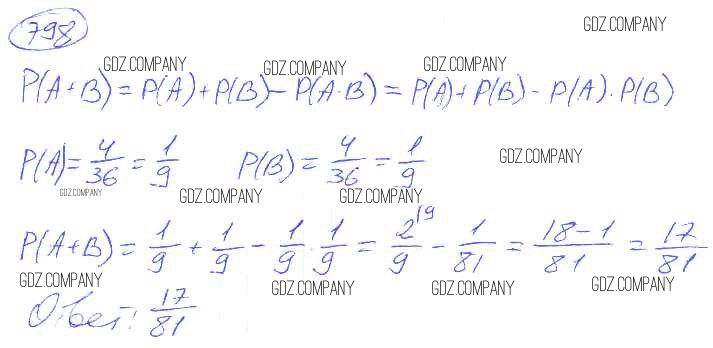 798
GDZ.COMPANY
GDZ.COMPANY GDZ.COMPANY GDZ.COMPANY
P(A+B) = P(A) + P(B) - P(A·B) = P(A) + P(B) - P(A)·P(B)
P(A) = 4/36 = 1/9 P(B) = 4/36 = 1/9 GDZ.COMPANY
GDZ.COMPANY GDZ.COMPANY GDZ.COMPANY
P(A+B) = 1/9 + 1/9 - 1/9 · 1/9 = 2/9 \9 - 1/81 = 18-1/81 = 17/81
GDZ.COMPANY GDZ.COMPANY GDZ.COMPANY GDZ.COMPANY
Ответ: 17/81